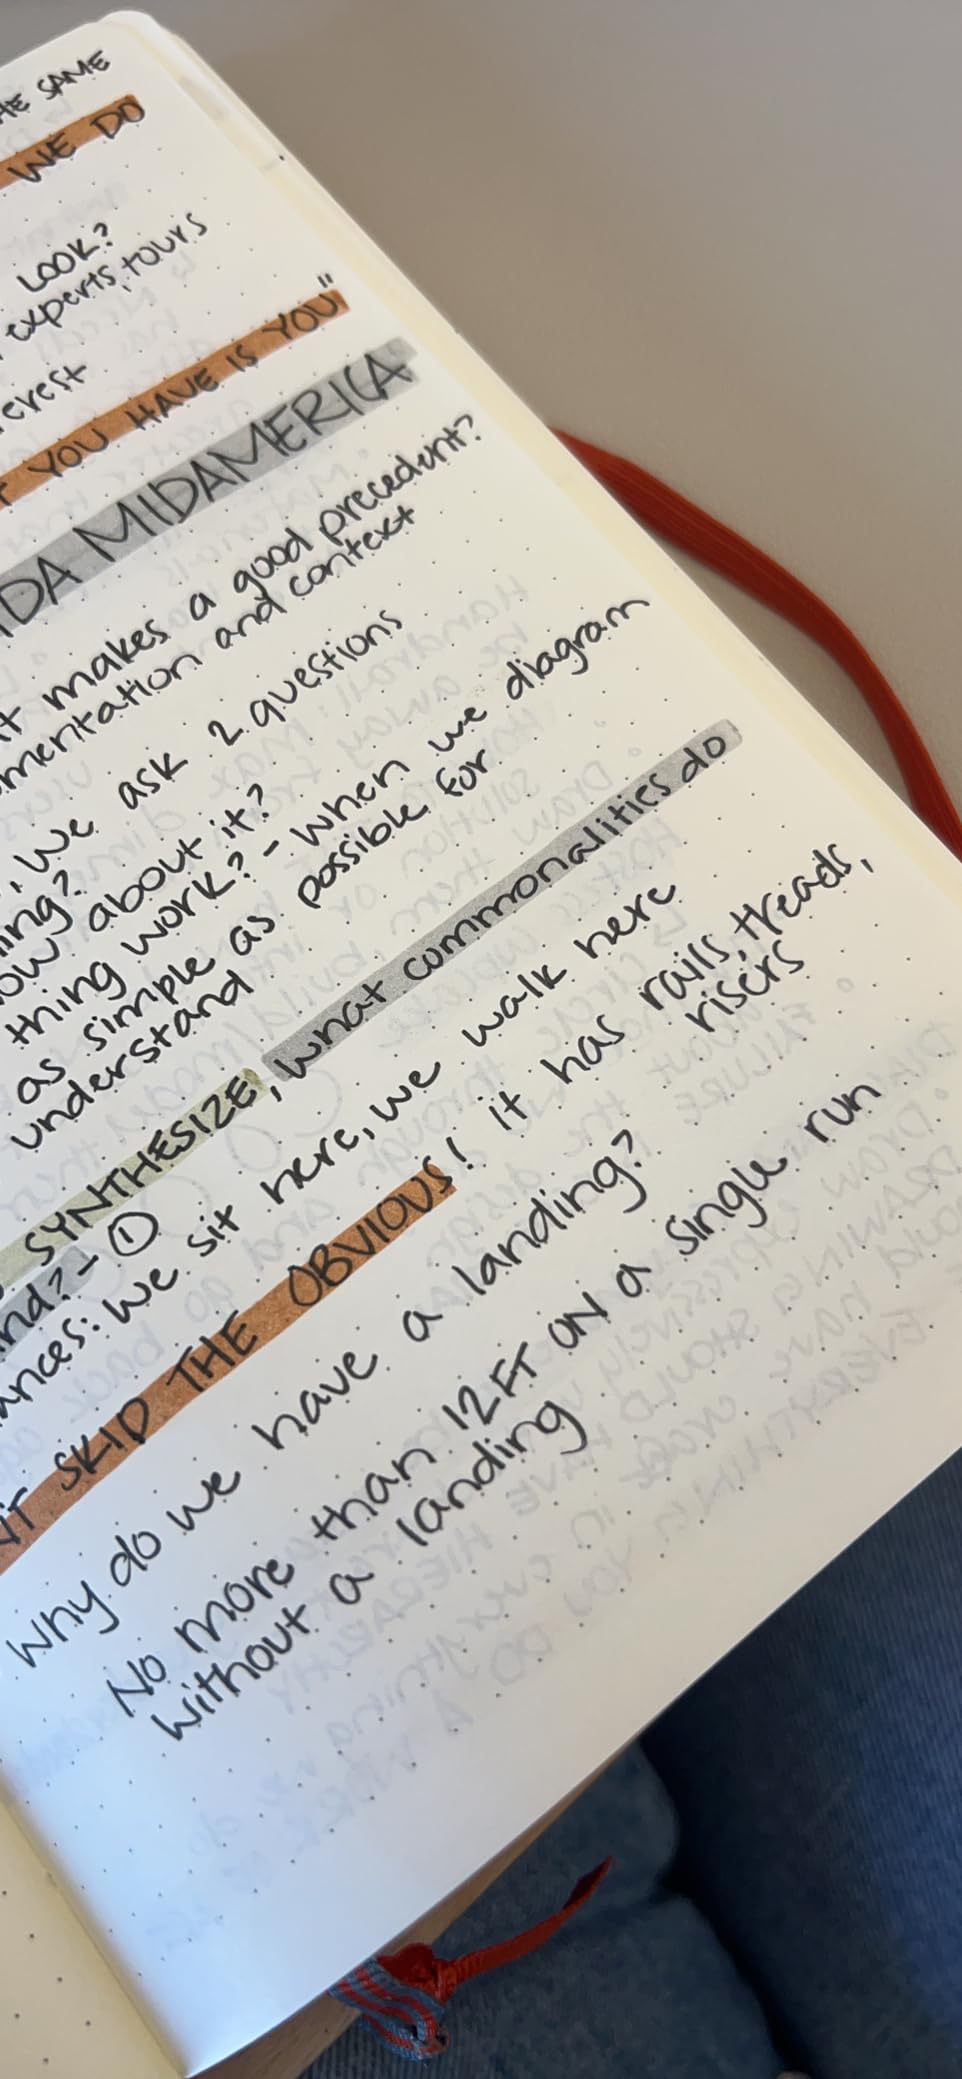 THE SAME
WE DO
LOOK?
experts, tours
erest
YOU HAVE IS YOU"
DA MIDAMERICA
makes a good precedent?
mentation and context
, we ask 2 questions
ning?
ow about it?
thing work? - When we diagram
as simple as possible for
understand
SYNTHESIZE, what commonalities do
nd? - ①
ances: We sit here, we walk here
SKID THE OBVIOUS! it has rails, treads,
risers
Why do we have a landing?
No more than 12FT ON a single run
without a landing